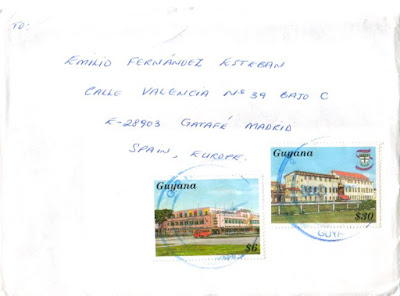 TO:
EMILIO FERNÁNDEZ ESTEBAN
CALLE VALENCIA Nº 39 BAJO C
E-28903 GATAFÉ MADRID
SPAIN, EUROPE.
Guyana
$6
Guyana
$30
GUYA